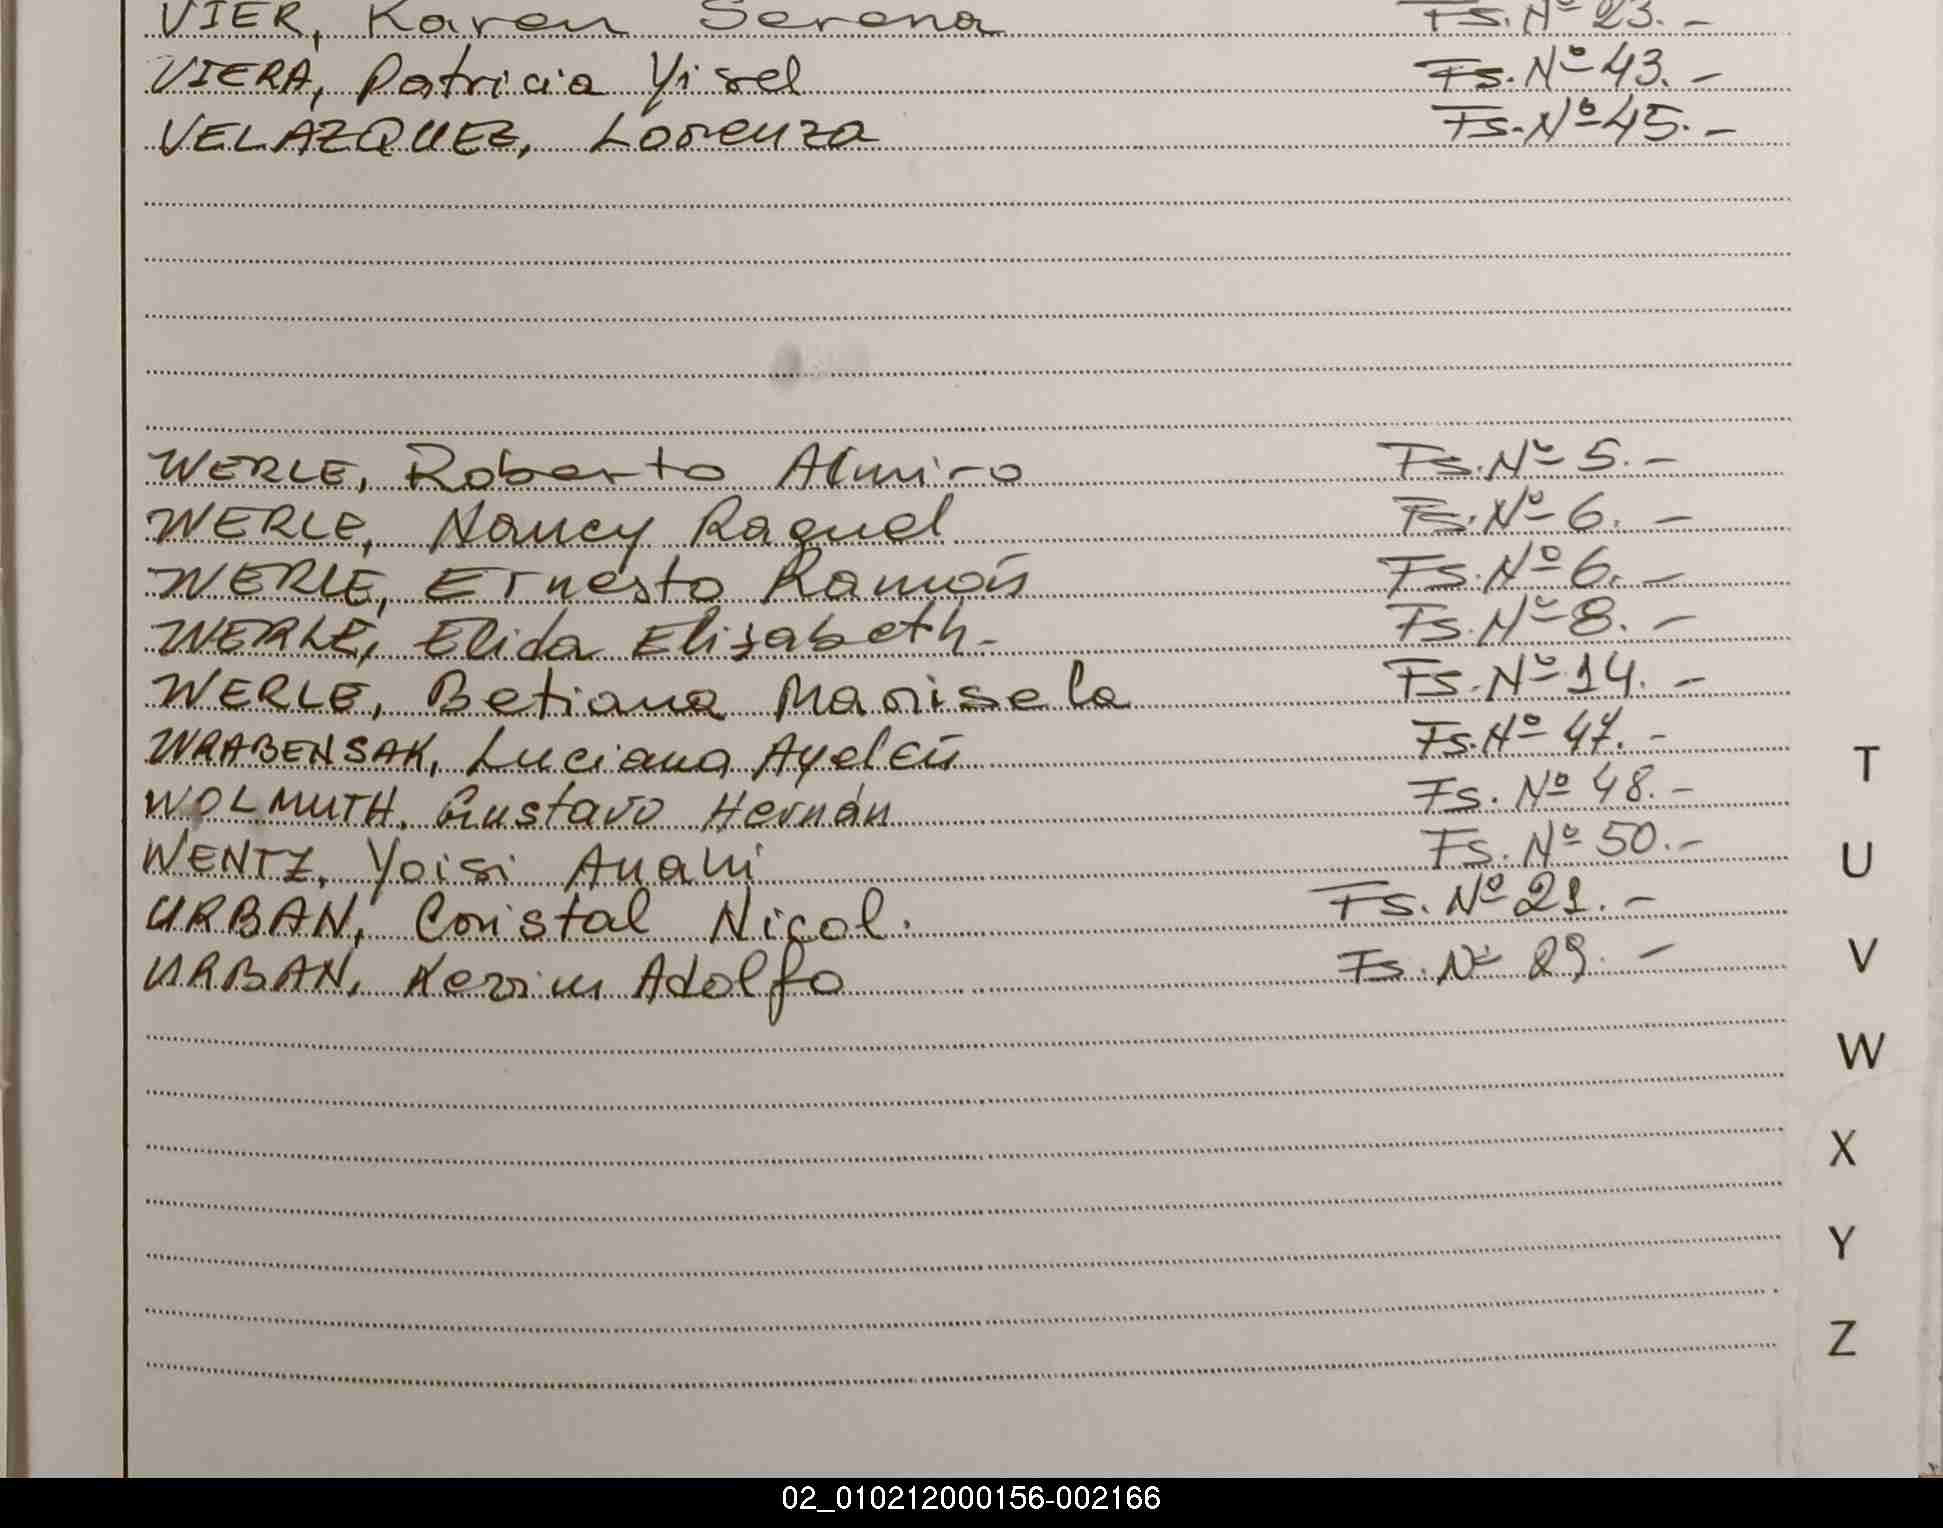 VIER, Karen Serena Fs. Nº 23.-
VIERA, Patricia Yisel Fs. Nº 43.-
VELAZQUEZ, Lorenza Fs. Nº 45.-
WERLE, Roberto Almiro Fs. Nº 5.-
WERLE, Nancy Raquel Fs. Nº 6.-
WERLE, Ernesto Ramón Fs. Nº 6.-
WERLE, Elida Elisabeth- Fs. Nº 8.-
WERLE, Betiana Marisela Fs. Nº 14.-
WRABENSAK, Luciana Ayelén Fs. Nº 47.-
WOLMUTH, Gustavo Hernán Fs. Nº 48.-
WENTZ, Yoisi Anahi Fs. Nº 50.-
URBAN, Cristal Nicol. Fs. Nº 21.-
URBAN, Kerim Adolfo Fs. Nº 29.-
T
U
V
W
X
Y
Z
02_010212000156-002166